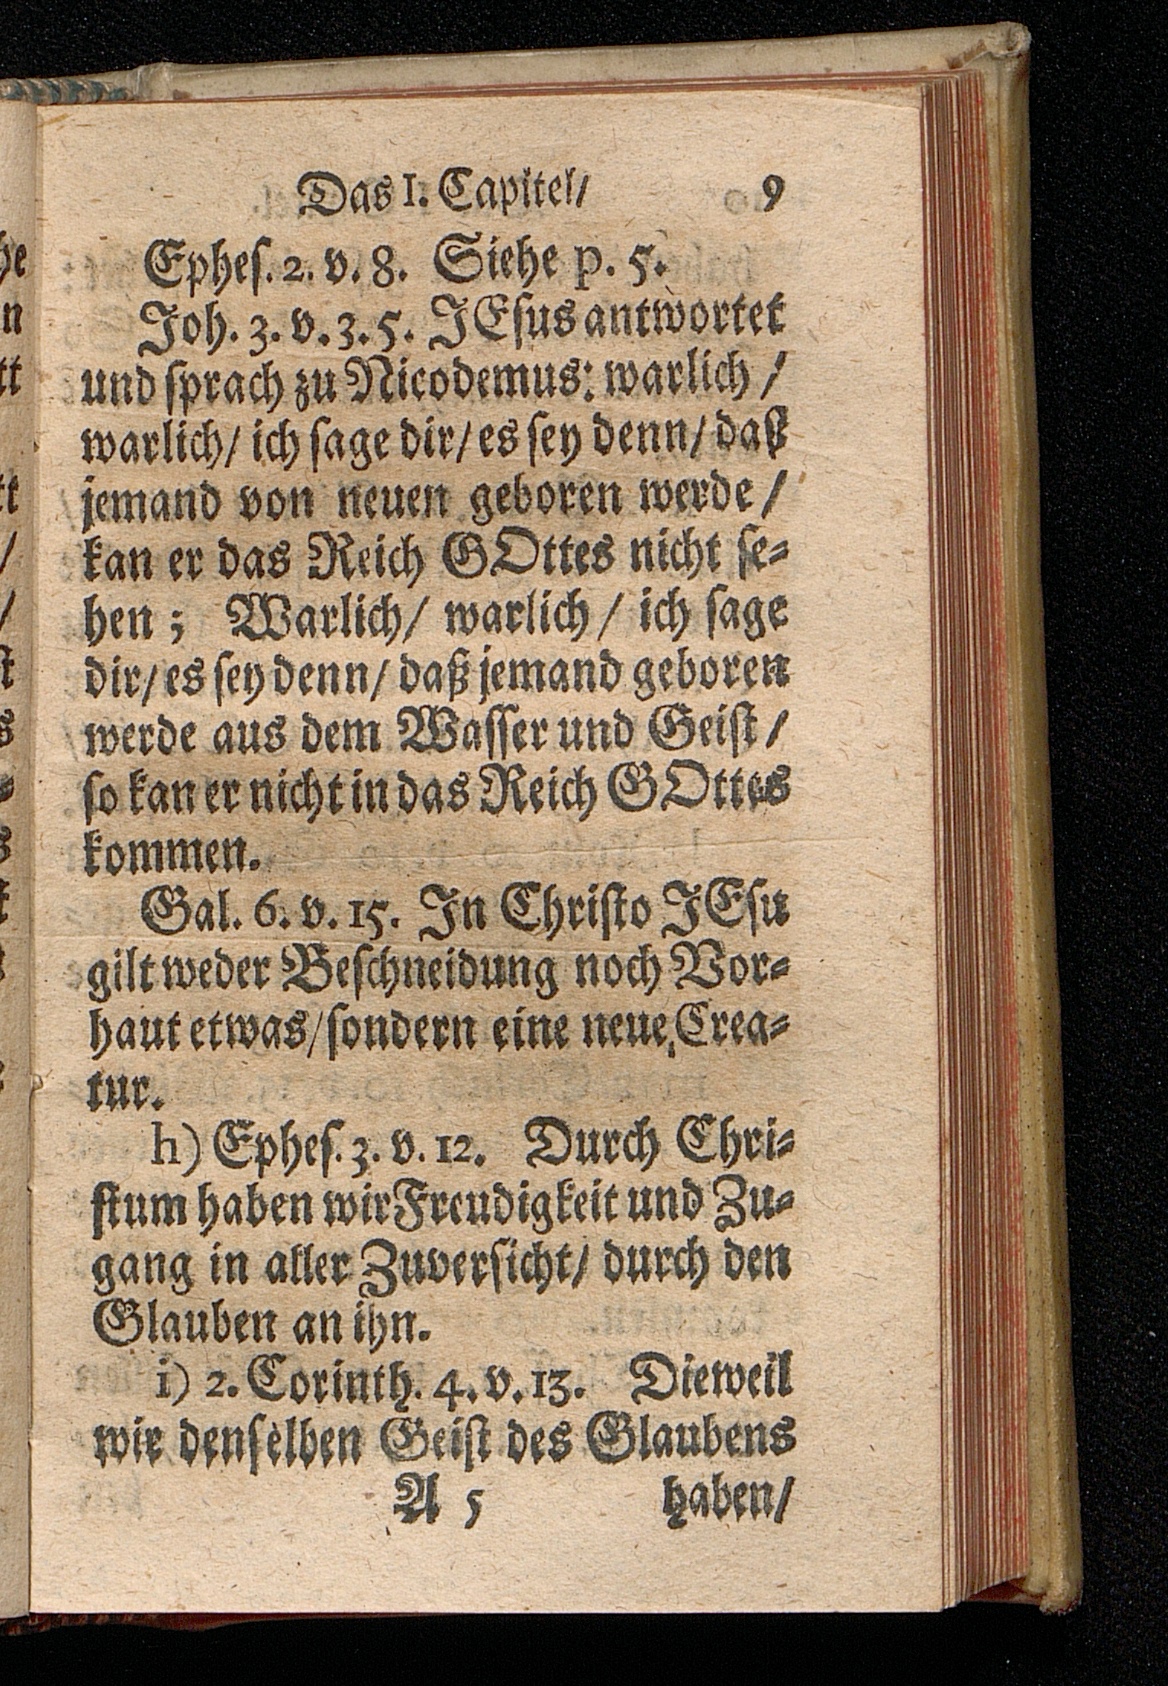 Das I. Capitel/ 9
Ephes. 2. v. 8. Siehe p. 5.
Joh. 3. v. 3. 5. JEsus antwortet
und sprach zu Nicodemus: warlich /
warlich/ ich sage dir/ es sey denn/ daß
jemand von neuen geboren werde /
kan er das Reich GOttes nicht se-
hen ; Warlich/ warlich / ich sage
dir/ es sey denn/ daß jemand geboren
werde aus dem Wasser und Geist /
so kan er nicht in das Reich GOttes
kommen.
Gal. 6. v. 15. Jn Christo JEsu
gilt weder Beschneidung noch Vor-
haut etwas/ sondern eine neue Crea-
tur.
h) Ephes. 3. v. 12. Durch Chri-
stum haben wir Freudigkeit und Zu-
gang in aller Zuversicht/ durch den
Glauben an ihn.
i) 2. Corinth. 4. v. 13. Dieweil
wir denselben Geist des Glaubens
A 5 haben/